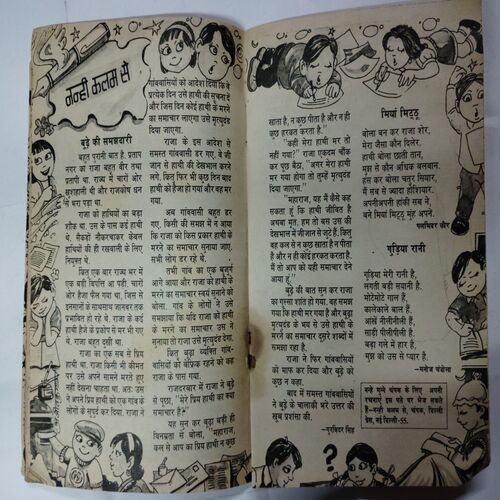 नन्ही कलम से
बूढ़े की समझदारी
बहुत पुरानी बात है. प्रताप
नगर का राजा बहुत वीर तथा
प्रतापी था. राज्य में चारों ओर
खुशहाली थी और राजकोष धन
से भरा पड़ा था.
राजा को हाथियों का बड़ा
शौक था. उस के पास कई हाथी
थे. सैकड़ों नौकरचाकर केवल
हाथियों की ही रखवाली के लिए
नियुक्त थे.
किंतु एक बार राज्य भर में
एक बड़ी विपत्ति आ पड़ी. चारों
ओर हैजा फैल गया था, जिस से
इनसानों के साथसाथ जानवर तक
प्रभावित हो रहे थे. राजा के कई
हाथी हैजे के प्रकोप से मर भी गए
थे. राजा बहुत दुखी था.
राजा का एक सब से प्रिय
हाथी था. राजा किसी भी हाथी
को अपने सामने मरते हुए
नहीं देखना चाहता था. अतः उस
ने अपने प्रिय हाथी को एक गांव के
लोगों के सुपुर्द कर दिया. राजा ने
गांववासियों को आदेश दिया कि वे
प्रत्येक दिन उसे हाथी की सूचना दें
और जिस दिन कोई हाथी के मरने
का समाचार लाएगा उसे मृत्युदंड
दिया जाएगा.
राजा के इस आदेश से
समस्त गांववासी डर गए. वे जी
जान से हाथी की देखभाल में लग
गए. किंतु फिर भी कुछ दिन बाद
हाथी को हैजा हो गया और वह मर
गया.
अब गांववासी बहुत डर
गए. किसी की समझ में न आया
कि राजा को किस प्रकार हाथी के
मरने का समाचार सुनाया जाए.
सभी लोग डर रहे थे.
तभी गांव का एक बुजुर्ग
आगे आया और राजा को हाथी के
मरने का समाचार स्वयं सुनाने को
बोला. गांव के लोगों ने उसे
समझाया कि यदि राजा को हाथी
के मरने का समाचार उस ने
सुनाया तो राजा उसे मृत्युदंड देगा.
किंतु बूढ़ा व्यक्ति गांव-
वासियों को बेफिक्र रहने को कह
राजा के पास गया.
राजदरबार में राजा ने बूढ़े
से पूछा, "मेरे प्रिय हाथी का क्या
समाचार है?"
यह सुन कर बूढ़ा बड़ी ही
विनम्रता से बोला, "महाराज,
कल से आप का प्रिय हाथी न कुछ
खाता है, न कुछ पीता है और न ही
कुछ हरकत करता है."
"कहीं मेरा हाथी मर तो
नहीं गया?" राजा एकदम चौंक
कर पूछ बैठा, "अगर मेरा हाथी
मर गया होगा तो तुम्हें मृत्युदंड
दिया जाएगा."
"महाराज, यह मैं कैसे कह
सकता हूं कि हाथी जीवित है
अथवा मृत. हम तो बस उस की
देखभाल में जीजान से जुटे हैं. किंतु
वह कल से न कुछ खाता है न पीता
है और न ही कोई हरकत करता है.
मैं तो आप को यही समाचार देने
आया हूं."
बूढ़े की बात सुन कर राजा
का गुस्सा शांत हो गया. वह समझ
गया कि हाथी मर गया है और बूढ़ा
मृत्युदंड के भय से उसे हाथी के
मरने का समाचार दूसरे शब्दों में
समझा रहा है.
राजा ने फिर गांववासियों
को माफ कर दिया और बूढ़े को
कुछ न कहा.
बाद में समस्त गांववासियों
ने बूढ़े के चालाकी भरे उत्तर की
खूब प्रशंसा की.
—गुरबिंदर सिंह
मियां मिट्ठू
बोला बन कर राजा शेर,
मेरा जैसा कौन दिलेर.
हाथी बोला छाती तान,
मुझ से कौन अधिक बलवान.
हंस कर बोला चतुर सियार,
मैं सब से ज्यादा होशियार.
अपनीअपनी हांकी सब ने,
बने मियां मिट्ठू मुंह अपने.
पलविंदर कौर
गुड़िया रानी
गुड़िया मेरी रानी है,
लगती बड़ी सयानी है.
मोटेमोटे गाल हैं,
कालेकाले बाल हैं.
आंखें नीलीनीली हैं,
साड़ी पीलीपीली है.
बड़ा गले में हार है,
मुझ को उस से प्यार है.
—मनोज चंदोला
नन्हे मुन्ने चंपक के लिए अपनी
रचनाएं इस पते पर भेज सकते
हैं—नन्ही कलम से, चंपक, दिल्ली
प्रेस, नई दिल्ली-55.